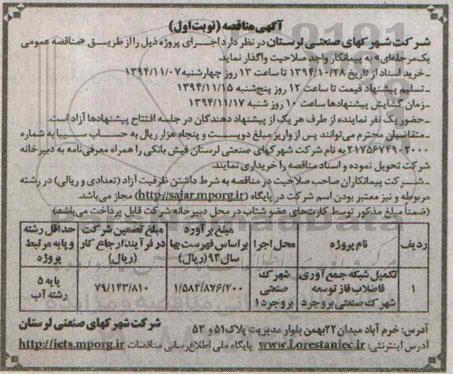 آگهی مناقصه (نوبت اول)
شرکت شهرکهای صنعتی لرستان در نظر دارد اجرای پروژه ذیل را از طریق «مناقصه عمومی
یک مرحله‌ای» به پیمانکار واجد صلاحیت واگذار نماید.
-خرید اسناد از تاریخ ۱۳۹۴/۱۰/۲۸ تا ساعت ۱۳ روز چهارشنبه ۱۳۹۴/۱۱/۰۷
-تسلیم پیشنهاد قیمت تا ساعت ۱۳ روز پنج‌شنبه ۱۳۹۴/۱۱/۱۵
-زمان گشایش پیشنهادها ساعت ۱۰ روز شنبه ۱۳۹۴/۱۱/۱۷
-حضور یک نفر نماینده از طرف هر یک از پیشنهاد دهندگان در جلسه افتتاح پیشنهادها آزاد است.
-متقاضیان محترم می‌توانند پس از واریز مبلغ دویست و پنجاه هزار ریال به حساب سیبا به شماره
۲۱۷۵۶۷۴۹۰۲۰۰۰ به نام شرکت شهرکهای صنعتی لرستان فیش بانکی را همراه معرفی‌نامه به دبیرخانه
شرکت تحویل نموده و اسناد مناقصه را خریداری نمایند.
-شرکت پیمانکاران صاحب صلاحیت در مناقصه به شرط داشتن ظرفیت آزاد (تعدادی و ریالی) در رشته
مربوطه و نیز معتبر بودن اسم شرکت در پایگاه (http://sajar.mporg.ir) مجاز می‌باشد.
(ضمناً مبلغ مذکور توسط کارت‌های عضو شتاب در محل دبیرخانه شرکت قابل پرداخت می‌باشد)
ردیف | نام پروژه | محل اجرا | مبلغ برآورد براساس فهرست بها سال ۹۴ (ریال) | مبلغ تضمین شرکت در فرآیند ارجاع کار (ریال) | حداقل رشته و پایه مرتبط پروژه
۱ | تکمیل شبکه جمع آوری فاضلاب فاز توسعه شهرک صنعتی بروجرد | شهرک صنعتی بروجرد ۱ | ۱/۵۸۲/۸۷۶/۲۰۰ | ۷۹/۱۴۳/۸۱۰ | پایه ۵ رشته آب
شرکت شهرکهای صنعتی لرستان
آدرس: خرم آباد میدان ۲۲بهمن بلوار مدیریت پلاک ۵۱ و ۵۳
آدرس اینترنتی: www.Lorestaniec.ir پایگاه ملی اطلاع رسانی مناقصات http://iets.mporg.ir